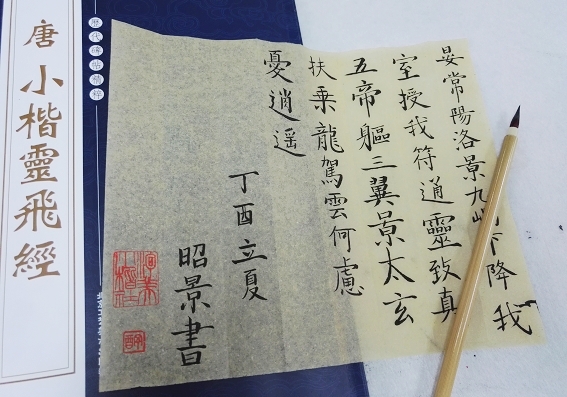 唐
小楷靈飛經
晏常陽洛景九下降我
室授我符通靈致真
五帝軀三翼景太玄
扶乘龍駕雲何慮
憂逍遥
丁酉立夏
昭景書